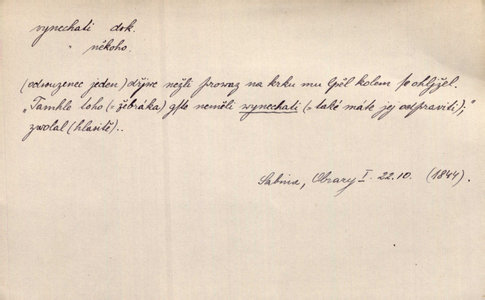 vynechati dok.
" někoho.
(odsouzenec jeden) dříve nežli prowaz na krku mu lpěl kolem se ohlížel.
"Tamhle toho (= žebráka) gste neměli wynechati (= také máte jej odpraviti);"
zwolal (hlasitě)..
Sabina, Obrazy I. 22.10. (1844).